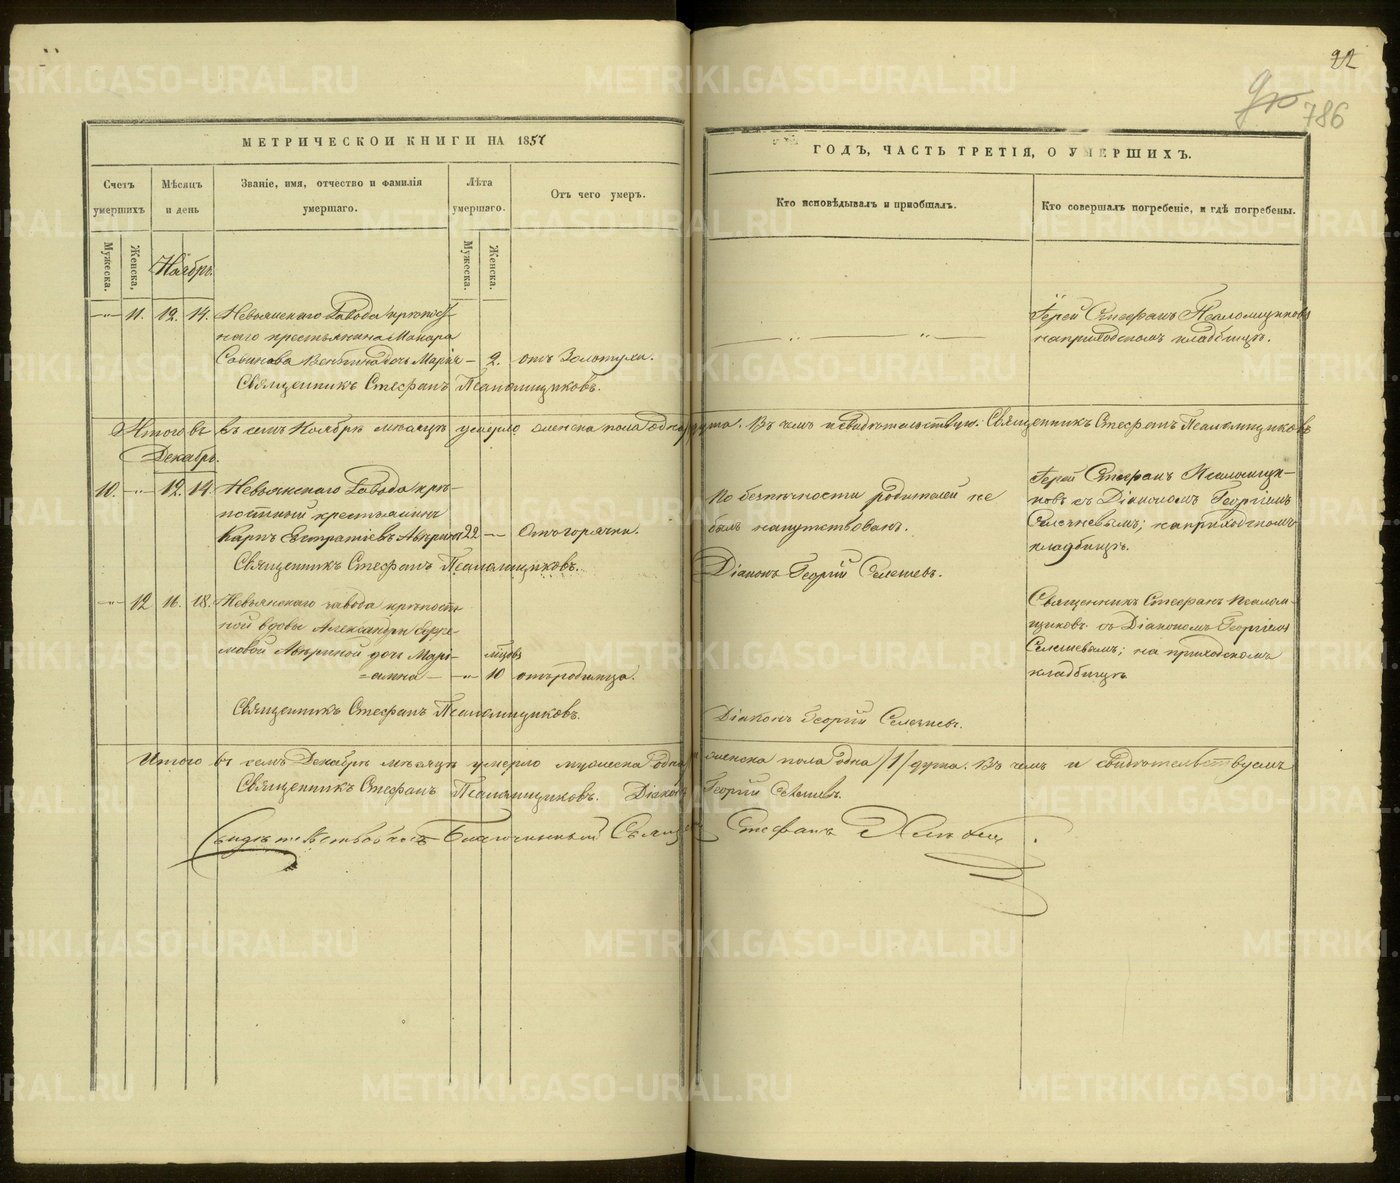 22
786
МЕТРИЧЕСКОЙ КНИГИ НА 1857
ГОДЪ, ЧАСТЬ ТРЕТІЯ, О УМЕРШИХЪ.
Счетъ умершихъ
Мѣсяцъ и день
Званіе, имя, отчество и фамилія умершаго.
Лѣта умершаго.
Отъ чего умеръ.
Кто исповѣдывалъ и пріобщалъ.
Кто совершалъ погребеніе, и гдѣ погребены.
Мужеска.
Женска,
Ноябрь.
Мужеска.
Женска.
—"— 11. 12. 14. Невьянскаго Завода крѣпост-
наго крестьянина Макара
дочь Марія — 2. отъ Золотухи.
Священникъ Стефанъ Псаломщиковъ.
Іерей Стефанъ Псаломщиковъ
на приходскомъ кладбищѣ.
Итого въ семъ Ноябрѣ мѣсяцѣ умерло женска пола одна душа. Въ чемъ и свидѣтельствую: Священникъ Стефанъ Псаломщиковъ
Декабрь.
10. —"— 12. 14. Невьянскаго Завода крѣ-
постный крестьянинъ
Карпъ Евстратіевъ Аверинъ 22 —"— Отъ горячки.
Священникъ Стефанъ Псаломщиковъ.
По безпечности родителей не
былъ напутствованъ.
Діаконъ Георгій Селешевъ.
Іерей Стефанъ Псаломщи-
ковъ съ Діакономъ Георгіемъ
на приходскомъ
кладбищѣ.
—"— 12 16. 18. Невьянскаго завода крѣпост-
ной вдовы Александры Ефре-
мовой Авериной дочь Марі-
=анна — —"— мѣсяцовъ 10 отъ родимца.
Священникъ Стефанъ Псаломщиковъ.
Діаконъ Георгій Селешевъ.
Священникъ Стефанъ Псалом-
щиковъ съ Діакономъ Георгіемъ
Селешевымъ; на приходскомъ
кладбищѣ
Итого въ семъ Декабрѣ мѣсяцѣ умерло мужеска одна и женска пола одна /1/ душа. Въ чемъ и свидѣтельствуемъ
Священникъ Стефанъ Псаломщиковъ. Діаконъ Георгій Селешевъ.
Свидѣтельствовалъ Благочинный Священникъ Стефанъ
METRIKI.GASO-URAL.RU